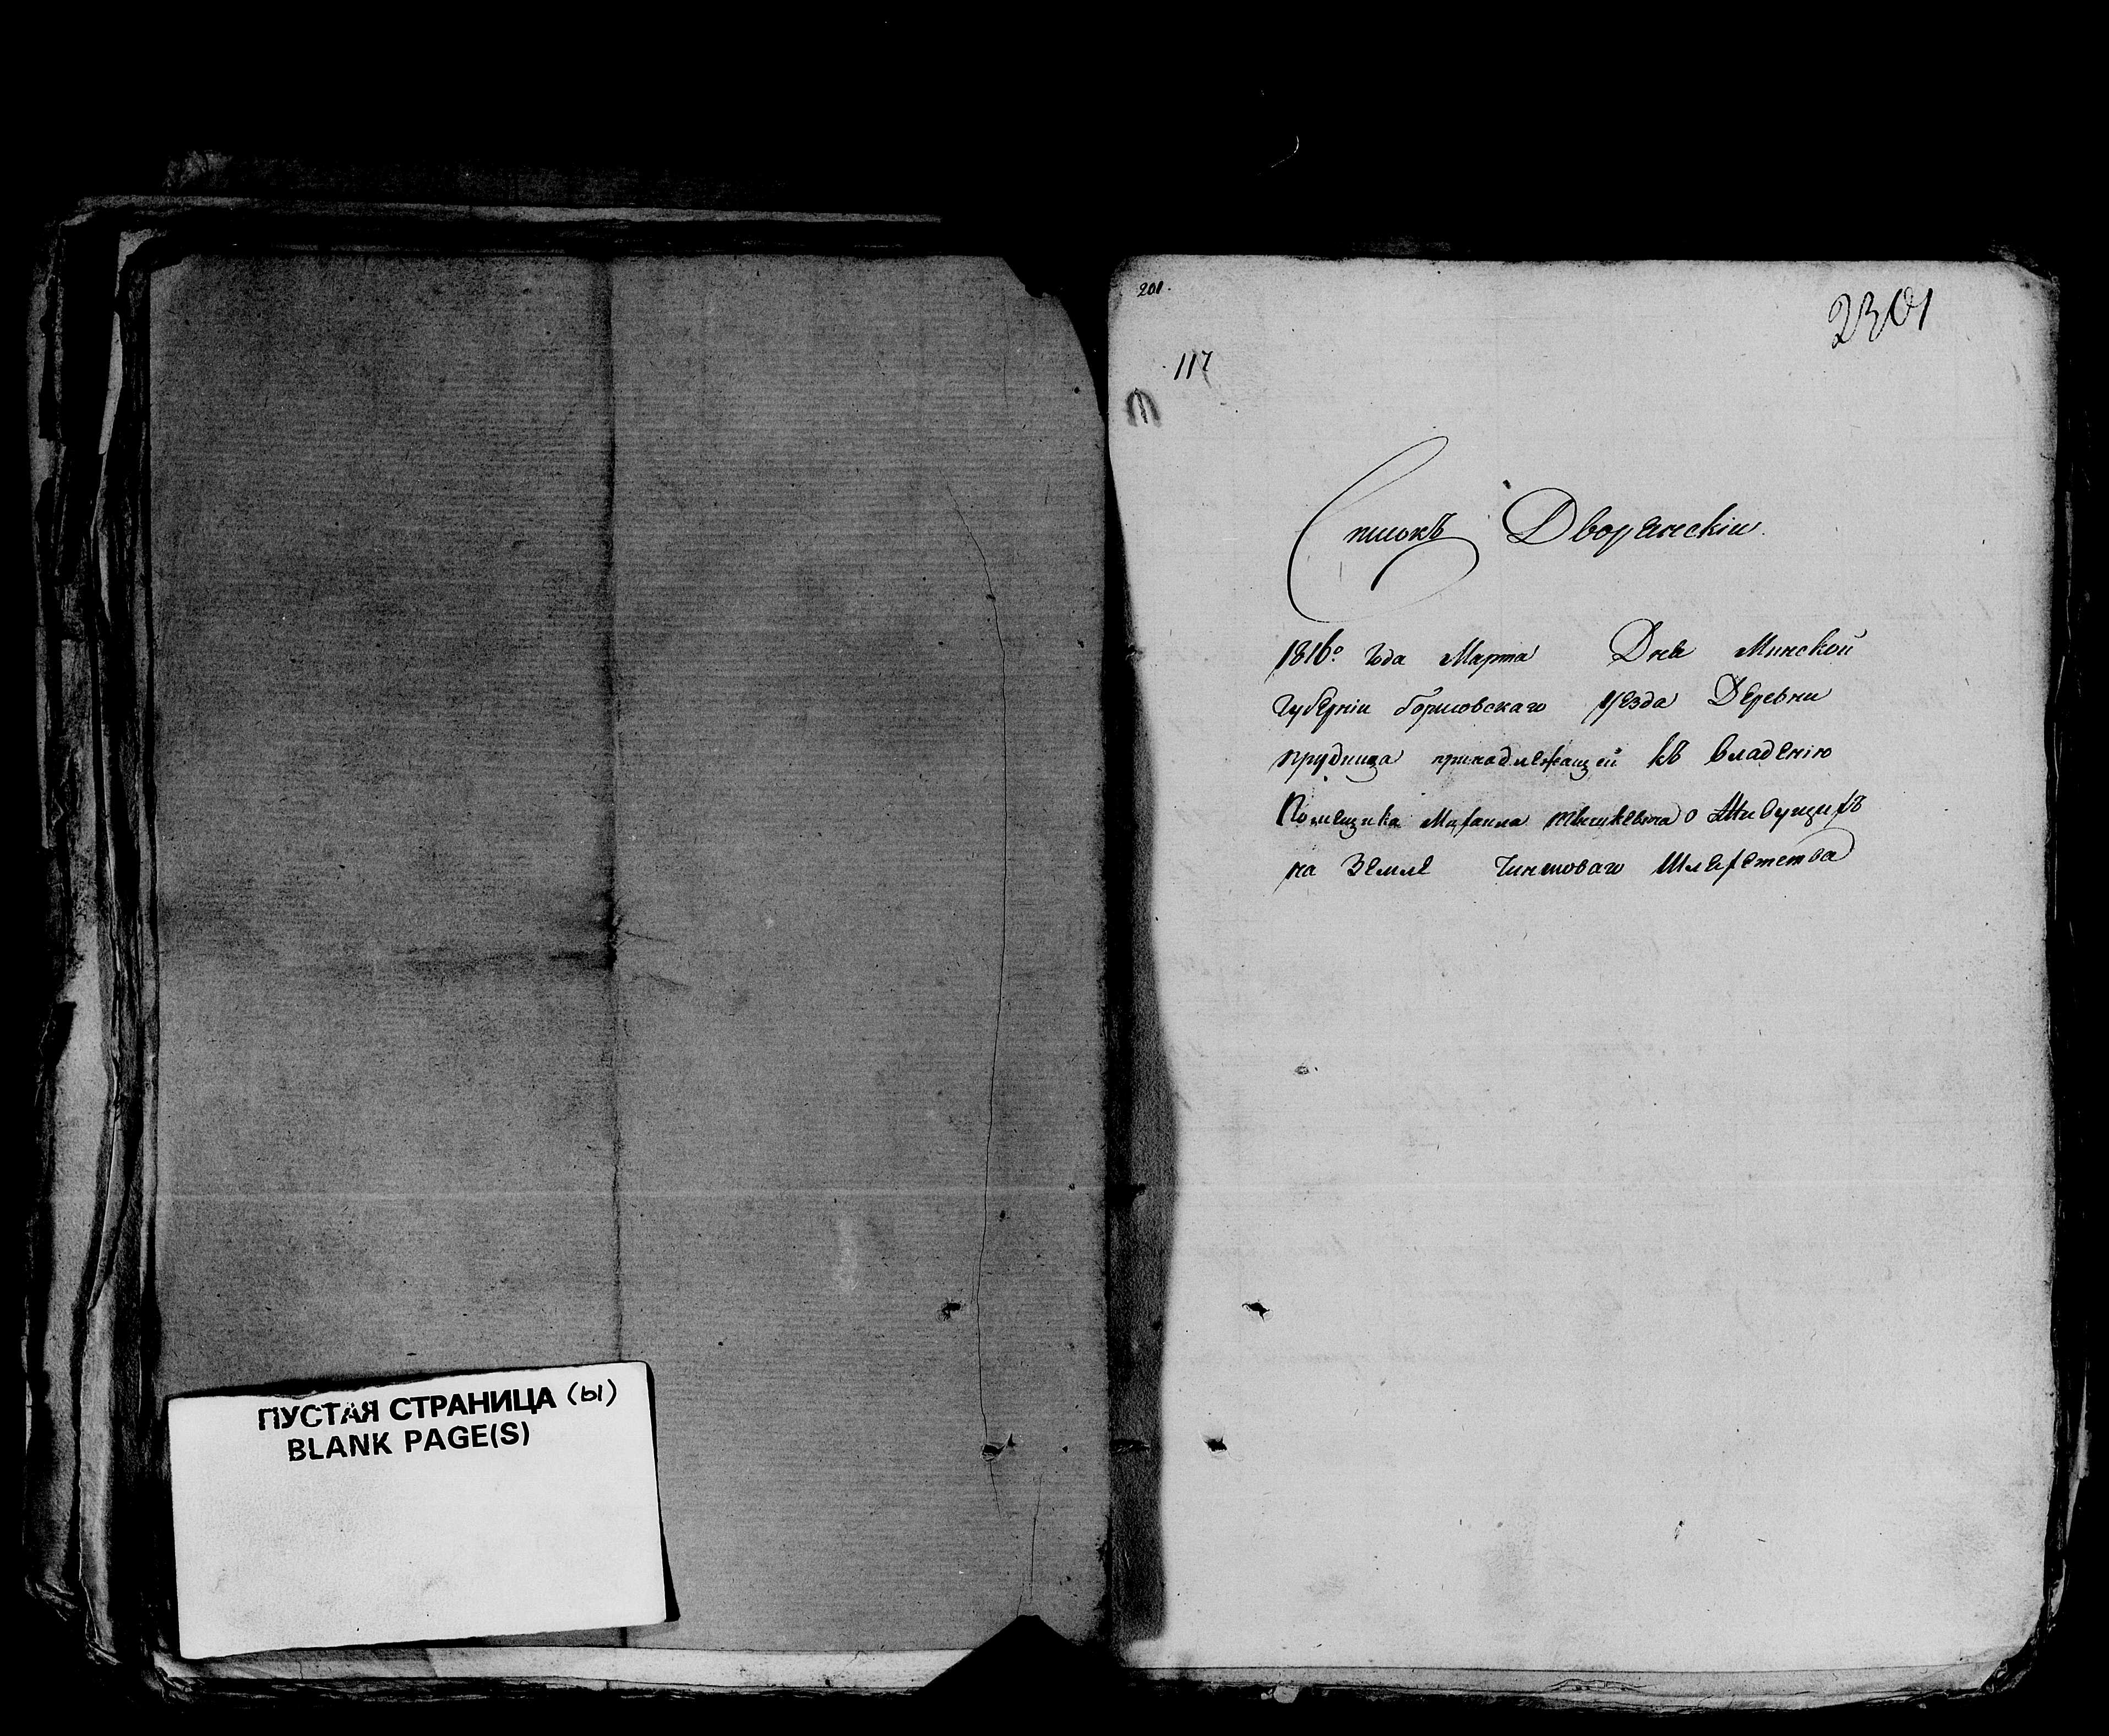 ПУСТАЯ СТРАНИЦА (ы)
BLANK PAGE(S)
201.
2301
117
Списокъ Дворянскіи
1816го года Марта Дня Минской
Губерніи борисовскаго уезда Деревни
прудища принадлежащей къ владенію
Помещика Михаила тышкевича о Живущихъ
на Земле Чиншоваго Шляхетства